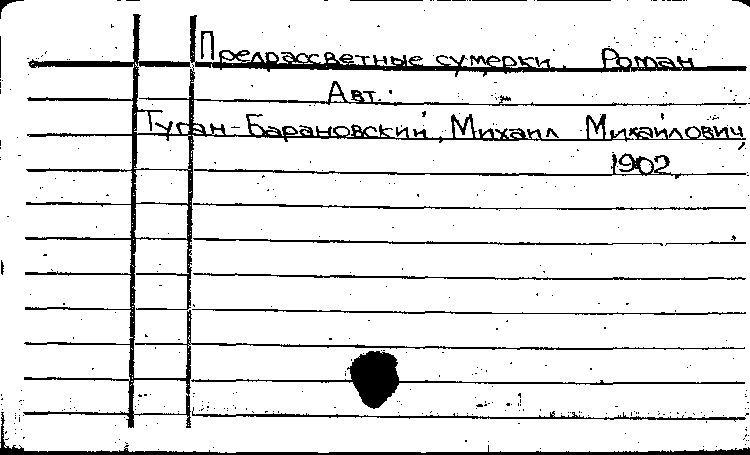 Предрассветные сумерки. Роман
Авт.:
Туган-Барановский, Михаил Михайлович,
1902.